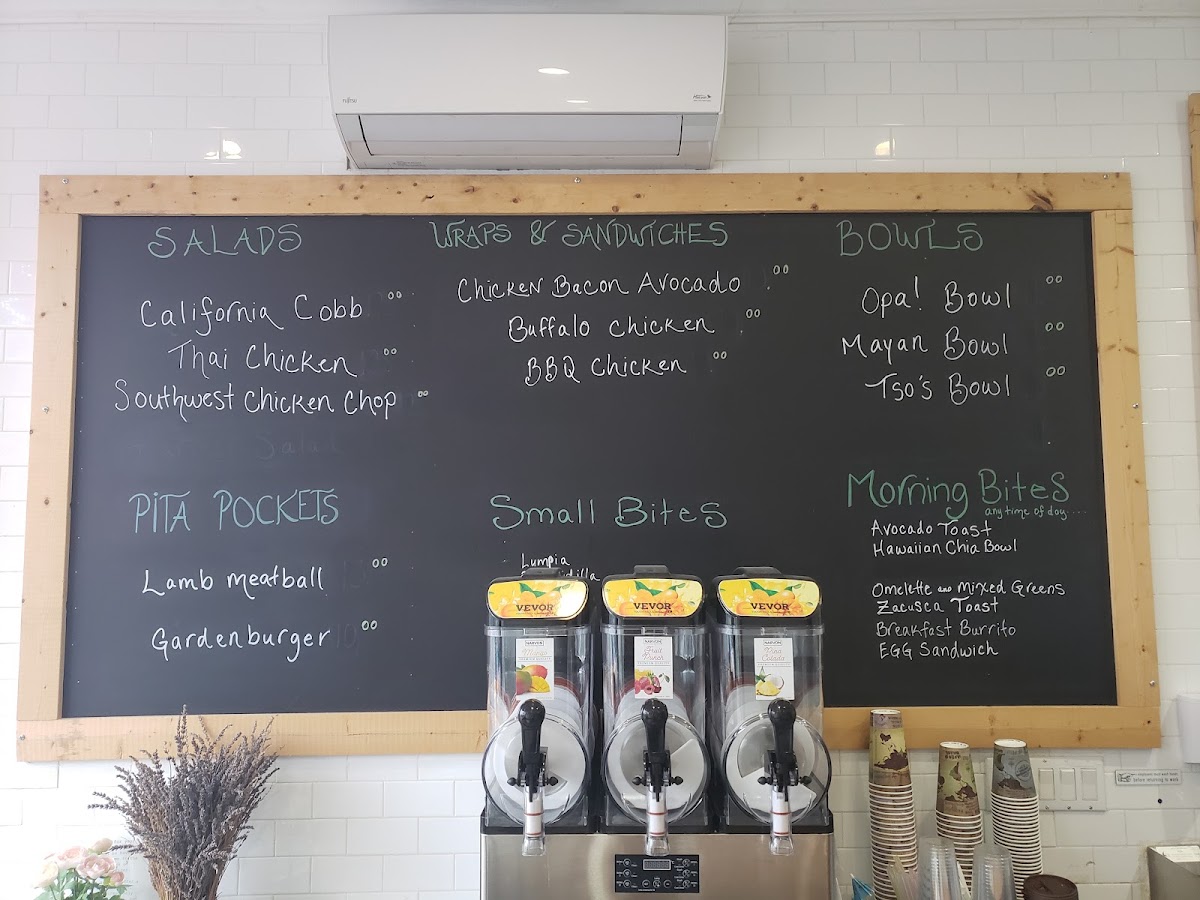 FUJITSU
SALADS
California Cobb 00
Thai Chicken 00
Southwest Chicken Chop 00
Salad
WRAPS & SANDWICHES
Chicken Bacon Avocado 00
Buffalo chicken 00
BBQ chicken 00
BOWLS
Opa! Bowl 00
Mayan Bowl 00
Tso's Bowl 00
PITA POCKETS
Lamb meatball 00
Gardenburger 00
Small Bites
Lumpia
Morning Bites
any time of day....
Avocado Toast
Hawaiian Chia Bowl
Omelette and Mixed Greens
Zacusca Toast
Breakfast Burrito
EGG Sandwich
VEVOR
VEVOR
VEVOR
Mango
Fruit
Punch
Pina
Colada